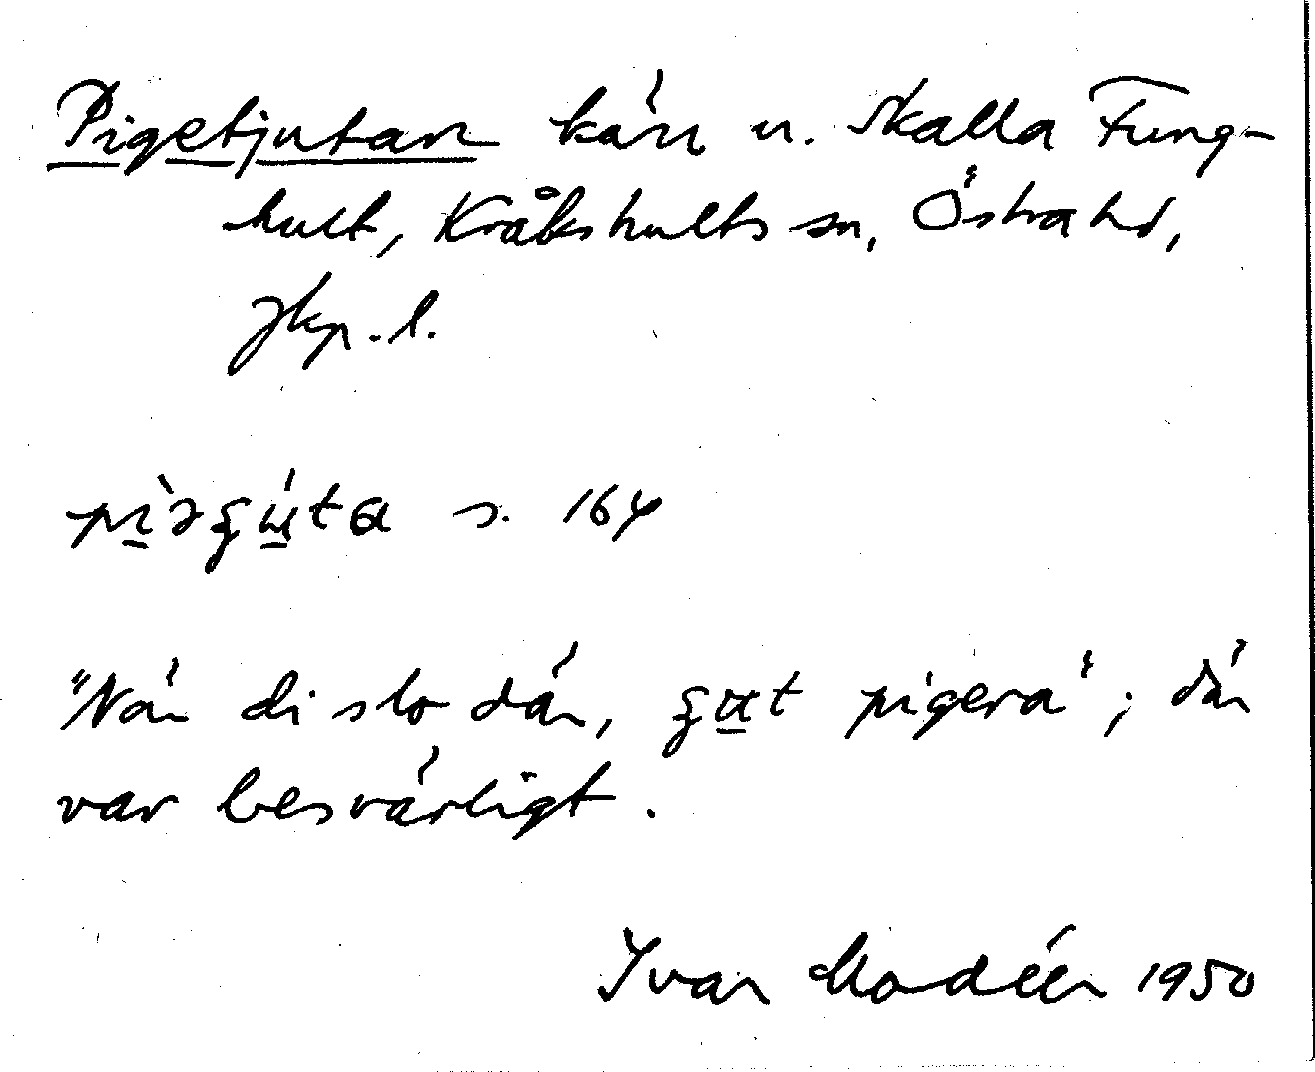 Pigetjutan kärr u. Skalla Fung-
hult, Kråkshults sn, Östra hd,
Jkp. l.
s. 164
"När di slo där, pigera"; där
var besvärligt.
Ivar Modéer 1950